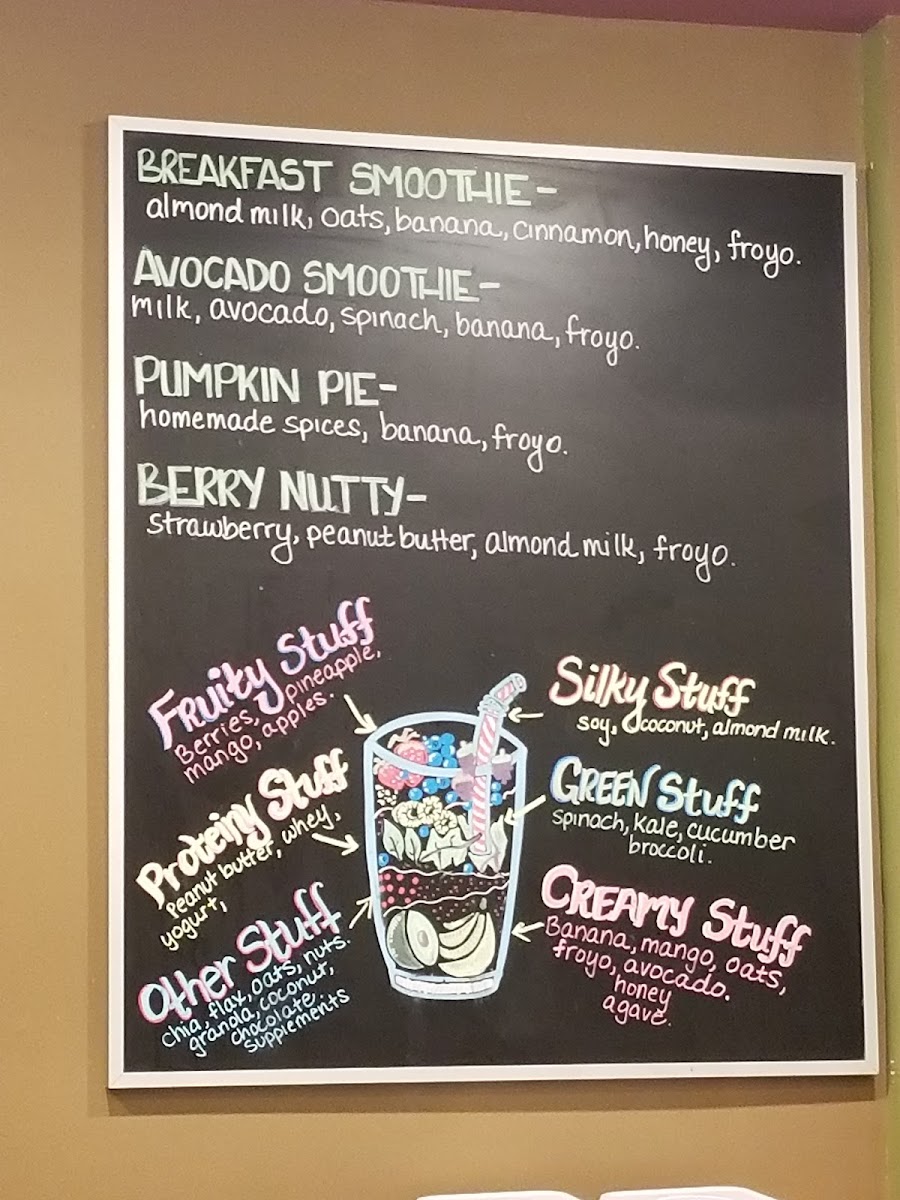 BREAKFAST SMOOTHIE-
almond milk, oats, banana, cinnamon, honey, froyo.
AVOCADO SMOOTHIE-
milk, avocado, spinach, banana, froyo.
PUMPKIN PIE-
homemade spices, banana, froyo.
BERRY NUTTY-
strawberry, peanut butter, almond milk, froyo.
Fruity Stuff
Berries, pineapple,
mango, apples.
Proteiny Stuff
Peanut butter, whey,
yogurt,
Other Stuff
chia, flax, oats, nuts.
granola, coconut,
chocolate,
supplements
Silky Stuff
soy, coconut, almond milk.
GREEN Stuff
spinach, kale, cucumber
broccoli.
CREAMY Stuff
Banana, mango, oats,
froyo, avocado.
honey
agave.